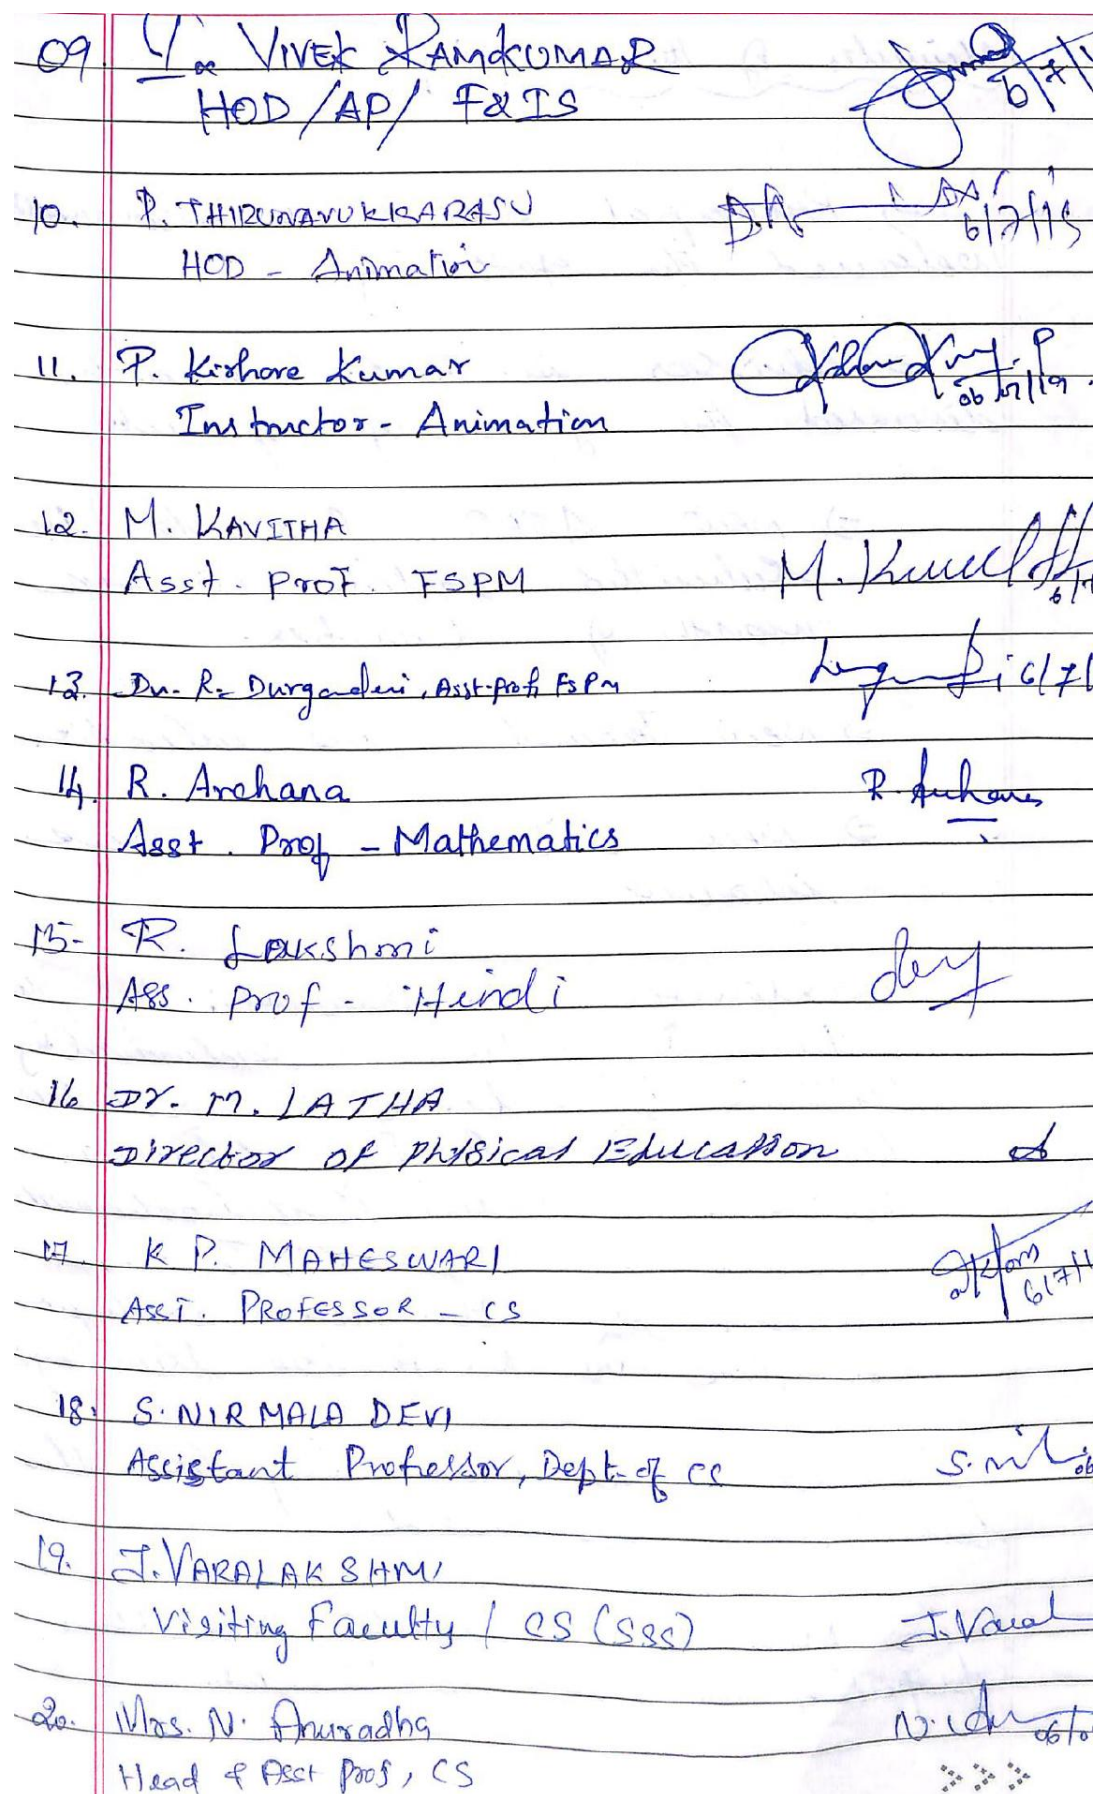 09. VIVEK RAMKUMAR
HOD/AP/ F&IS 6/7/
10. P. THIRUNAVUKKARASU 6/7/19
HOD - Animation
11. P. Kishore Kumar 06/07/19
Instructor - Animation
12. M. KAVITHA
Asst. Prof. FSPM M.
13. Dr. R. Durgadevi, Asst. Prof FSPM 6/7/
14. R. Archana R. Archana
Asst. Prof - Mathematics
15- R. Lakshmi
Ass. Prof - Hindi
16 Dr. M. LATHA
Director of Physical Education
17. K P. MAHESWARI 6/7/1
ASST. PROFESSOR - CS
18. S. NIRMALA DEVI
Assistant Professor, Dept. of CS S.
19. J. VARALAKSHMI
Visiting Faculty / CS (SSS) J. Varal
20. Mrs. N. Anuradha N. 06/0
Head & Asst Prof, CS